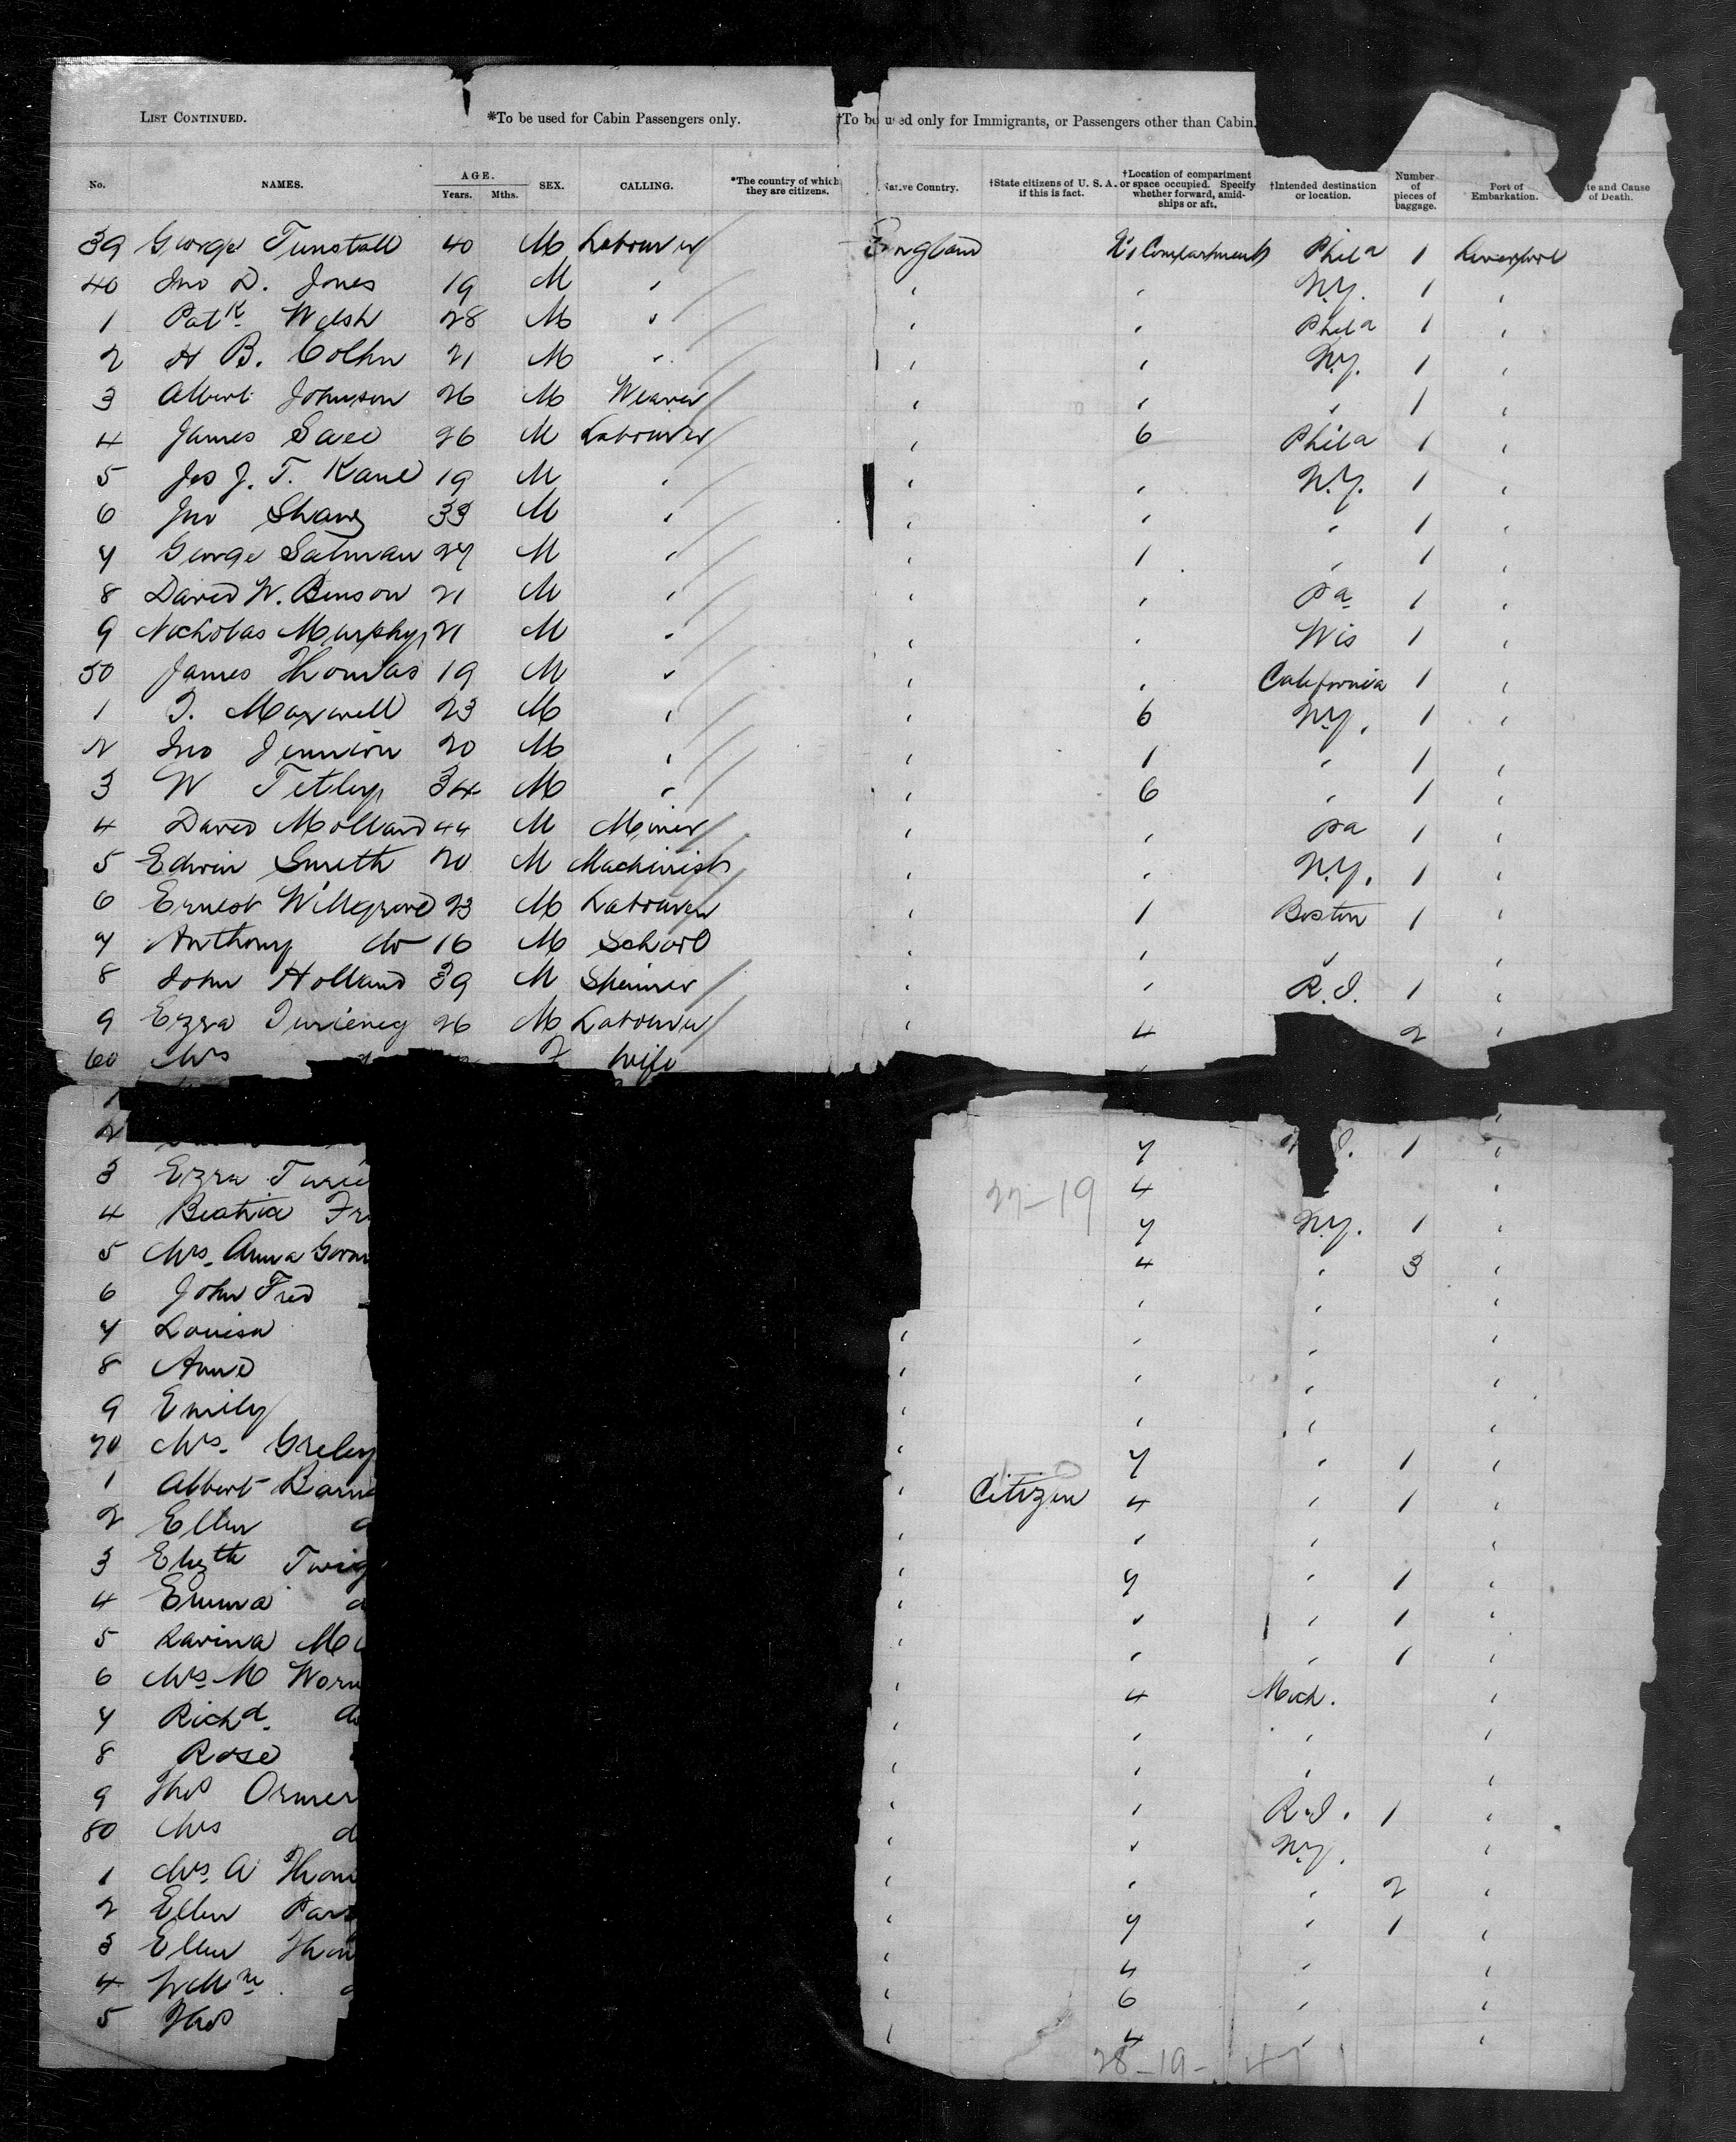 LIST CONTINUED. *To be used for Cabin Passengers only. †To be used only for Immigrants, or Passengers other than Cabin.
No. NAMES. AGE. Years. Mths. SEX. CALLING. *The country of which they are citizens. Native Country. †State citizens of U. S. A. if this is fact. †Location of compartment or space occupied. Specify whether forward, amidships or aft. †Intended destination or location. Number of pieces of baggage. Port of Embarkation. and Cause of Death.
39 George Tunstall 40 M Labourer England No 1 Compartment Phila 1 Liverpool
40 Jno D. Jones 19 M " " " N.Y. 1 "
1 Patk Welsh 28 M " " " Phila 1 "
2 H B. 21 M " " " N.Y. 1 "
3 Albert Johnson 26 M Weaver " " " 1 "
4 James 26 M Labourer " 6 Phila 1 "
5 Jas J. T. Kane 19 M " " " N.Y. 1 "
6 Jno Shaw 33 M " " " " 1 "
7 George Salman 27 M " " 1 " 1 "
8 David W. Benson 21 M " " " Pa 1 "
9 Nicholas Murphy 21 M " " " Wis 1 "
50 James Thomas 19 M " " " California 1 "
1 T. Maxwell 23 M " " 6 N.Y. 1 "
2 Jno Jennion 20 M " " 1 " 1 "
3 W Tetley 34 M " " 6 " 1 "
4 David Molland 44 M Miner " " Pa 1 "
5 Edwin Smith 20 M Machinist " " N.Y. 1 "
6 Ernest Willgrove 23 M Labourer " 1 Boston 1 "
7 Anthony do 16 M School " " " "
8 John Holland 39 M " " R.I. 1 "
9 Ezra 26 M Labourer " 4 2 "
60 Mrs F Wife
1 "
2 7 1 "
3 Ezra 4 "
4 Beatrice 7 N.Y. 1 "
5 Mrs. Anna 4 " 3 "
6 John Fred " " "
7 Louisa " " " "
8 Anne " " " "
9 Emily " " " "
70 Mrs. Greley " 7 " 1 "
1 Albert " Citizen 4 " 1 "
2 Ellen " " " "
3 Elizth Twig " 7 " 1 "
4 Emma " " " 1 "
5 Lavina " " " 1 "
6 Mrs M Worm " 4 Mich. "
7 Richd. do " " " "
8 Rose " " " "
9 Thos Ormer " " R.I. 1 "
80 Mrs d " " N.Y. "
1 Mrs A Thom " " " 2 "
2 Ellen Pars " 7 " 1 "
3 Ellen Thom " 4 " "
4 Wm " 6 " "
5 Thos " 4 " "
27-19
28-19-47